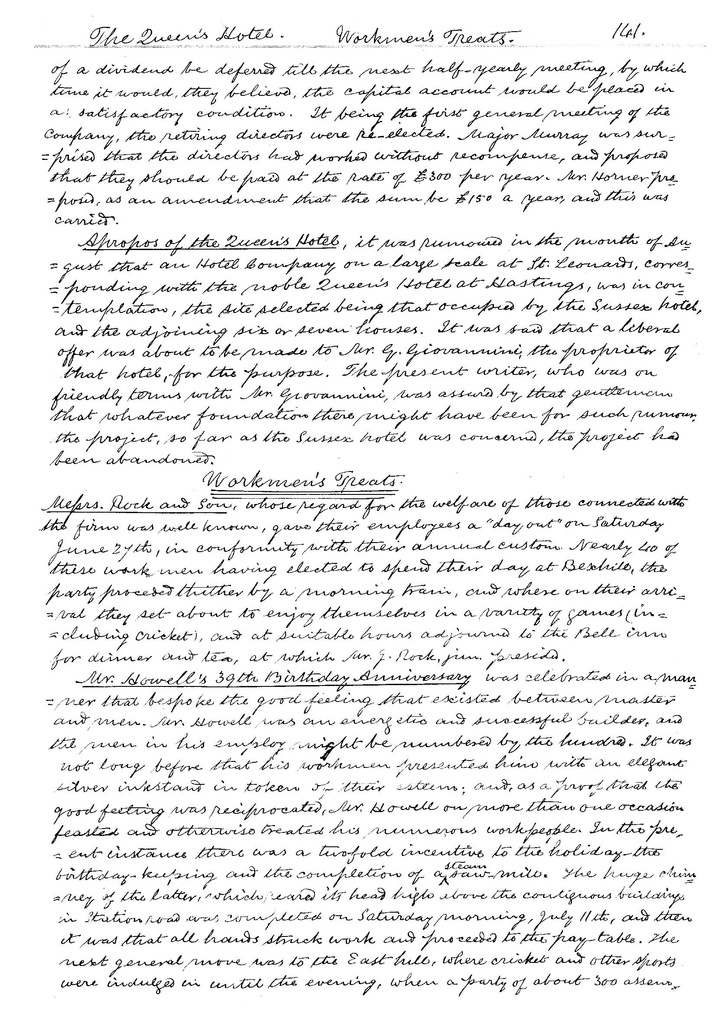 The Queen's Hotel. Workmen's Treats. 141.
of a dividend be deferred till the next half-yearly meeting, by which
time it would, they believed, the capital account would be placed in
a satisfactory condition. It being the first general meeting of the
Company, the retiring directors were re-elected. Major Murray was sur=
=prised that the directors had worked without recompense, and proposed
that they should be paid at the rate of £300 per year. Mr. Horner pro=
=posed, as an amendment that the sum be £150 a year, and this was
carried.
Apropos of the Queen's Hotel, it was rumoured in the month of Au=
=gust that an Hotel Company on a large scale at St. Leonards, corres=
=ponding with the noble Queen's Hotel at Hastings, was in con=
=templation, the site selected being that occupied by the Sussex hotel,
and the adjoining six or seven houses. It was said that a liberal
offer was about to be made to Mr. G. Giovannini, the proprietor of
that hotel, for the purpose. The present writer, who was on
friendly terms with Mr. Giovannini, was assured by that gentleman
that whatever foundation there might have been for such rumour
the project, so far as the Sussex hotel was concerned, the project had
been abandoned.
Workmen's Treats.
Messrs. Rock and Son, whose regard for the welfare of those connected with
the firm was well known, gave their employees a "day out" on Saturday
June 27th, in conformity with their annual custom. Nearly 40 of
these work men having elected to spend their day at Bexhill, the
party proceeded thither by a morning train, and where on their arri=
=val they set about to enjoy themselves in a variety of games (in=
=cluding cricket), and at suitable hours adjourned to the Bell inn
for dinner and tea, at which Mr. J. Rock, jun. presided.
Mr. Howell's 39th Birthday Anniversary was celebrated in a man
=ner that bespoke the good feeling that existed between master
and men. Mr. Howell was an energetic and successful builder, and
the men in his employ might be numbered by the hundred. It was
not long before that his workmen presented him with an elegant
silver inkstand in token of their esteem; and, as a proof that the
good feeling was reciprocated, Mr. Howell on more than one occasion
feasted and otherwise treated his numerous workpeople. In the pres=
=ent instance there was a twofold incentive to the holiday—the
birthday-keeping and the completion of a steam saw-mill. The huge chim
=ney of the latter, which reared its head high above the contiguous buildings
in Station road was completed on Saturday morning, July 11th, and then
it was that all hands struck work and proceeded to the pay-table. The
next general move was to the East hill, where cricket and other sports
were indulged in until the evening, when a party of about 300 assem=